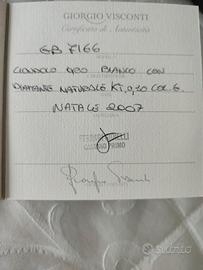 GIORGIO VISCONTI
Certificato di Autenticità
GB 7166
CIONDOLO ORO BIANCO CON
DIAMANTE NATURALE KT. 0,10 COL. G.
NATALE 2007
Subito